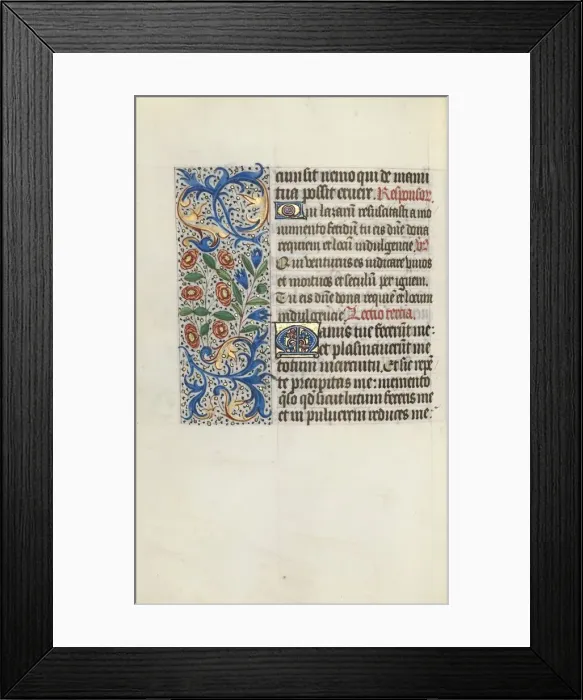 cum sit nemo qui de manu
tua possit eruere. Responsor.
Qui lazarũ resuscitasti a mo
numento fetidũ tu eis dñe dona
requiem et locũ indulgencie. v.
Qui venturus es iudicare viuos
et mortuos et seculũ per ignem.
Tu eis dñe dona requiẽ et locum
indulgẽcie. Lectio tercia.
Manus tue fecerũt me:
et plasmauerunt me
totum in circuitu. Et sic repẽ
te precipitas me: memento
q̃so qd̃ sicut lutum feceris me
et in puluerem reduces me: